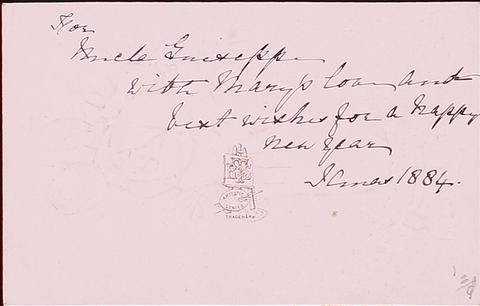 For
Uncle Guiseppe
with Mary's love and
best wishes for a Happy
New Year
Xmas 1884.
ARTISTIC
SERIES
TRADEMARK